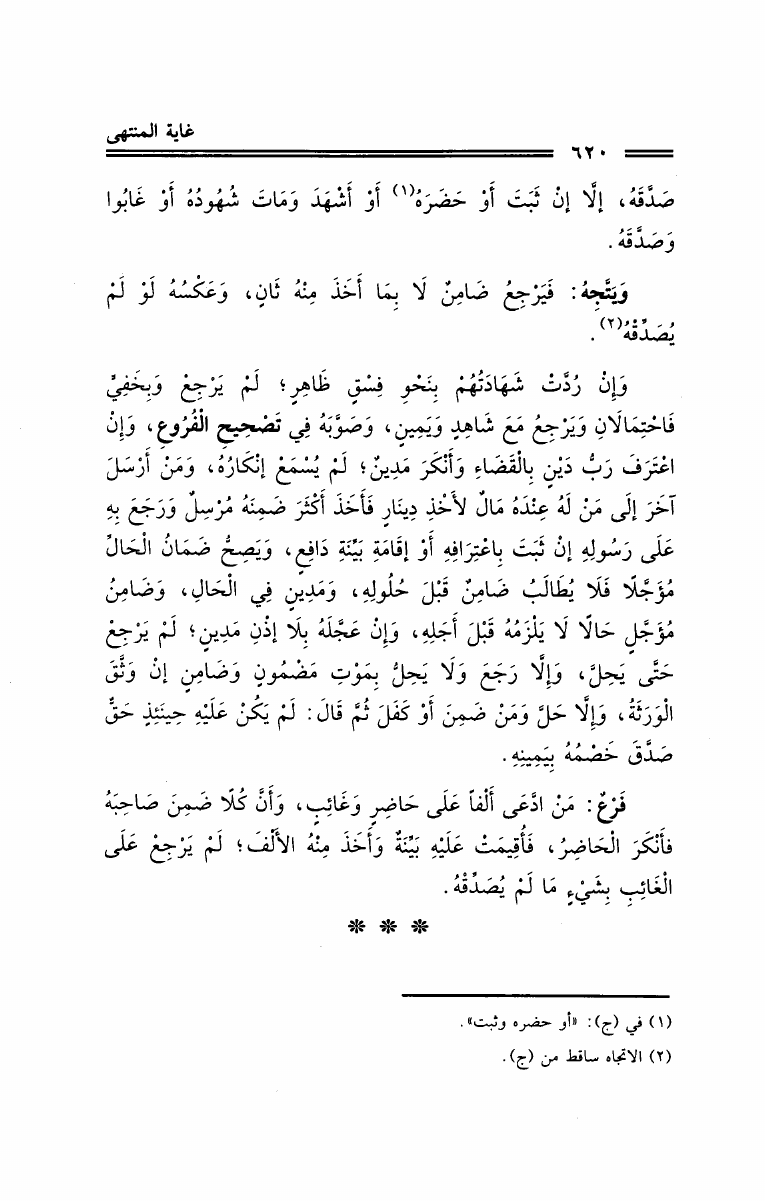 غاية المنتهى
٦٢٠
صَدَّقَهُ، إِلَّا إنْ ثَبَتَ أَوْ حَضَرَهُ(١) أَوْ أَشْهَدَ وَمَاتَ شُهُودُهُ أَوْ غَابُوا
وَصَدَّقَهُ.
وَيَتَّجِهُ: فَيَرْجِعُ ضَامِنٌ لَا بِمَا أَخَذَ مِنْهُ ثَانٍ، وَعَكْسُهُ لَوْ لَمْ
يُصَدِّقْهُ(٢).
وَإِنْ رُدَّتْ شَهَادَتُهُمْ بِنَحْوِ فِسْقٍ ظَاهِرٍ؛ لَمْ يَرْجِعْ وَبِخَفِيٍّ
فَاحْتِمَالَانِ وَيَرْجِعُ مَعَ شَاهِدٍ وَيَمِينٍ، وَصَوَّبَهُ فِي تَصْحِيحِ الْفُرُوعِ، وَإِنْ
اعْتَرَفَ رَبُّ دَيْنٍ بِالْقَضَاءِ وَأَنْكَرَ مَدِينٌ؛ لَمْ يُسْمَعْ إنْكَارُهُ، وَمَنْ أَرْسَلَ
آخَرَ إلَى مَنْ لَهُ عِنْدَهُ مَالٌ لأَخْذِ دِينَارٍ فَأَخَذَ أَكْثَرَ ضَمِنَهُ مُرْسِلٌ وَرَجَعَ بِهِ
عَلَى رَسُولِهِ إنْ ثَبَتَ بِاعْتِرَافِهِ أَوْ إقَامَةِ بَيِّنَةِ دَافِعٍ، وَيَصِحُّ ضَمَانُ الْحَالِّ
مُؤَجَّلًا فَلَا يُطَالَبُ ضَامِنٌ قَبْلَ حُلُولِهِ، وَمَدِينٍ فِي الْحَالِ، وَضَامِنُ
مُؤَجَّلٍ حَالًا لَا يَلْزَمُهُ قَبْلَ أَجَلِهِ، وَإِنْ عَجَّلَهُ بِلَا إذْنِ مَدِينٍ؛ لَمْ يَرْجِعْ
حَتَّى يَحِلَّ، وَإِلَّا رَجَعَ وَلَا يَحِلُّ بِمَوْتِ مَضْمُونٍ وَضَامِنٍ إنْ وَثَّقَ
الْوَرَثَةُ، وَإِلَّا حَلَّ وَمَنْ ضَمِنَ أَوْ كَفَلَ ثُمَّ قَالَ: لَمْ يَكُنْ عَلَيْهِ حِينَئِذٍ حَقٌّ
صَدَّقَ خَصْمُهُ بِيَمِينِهِ.
فَرْعٌ: مَنْ ادَّعَى أَلْفاً عَلَى حَاضِرٍ وَغَائِبٍ، وَأَنَّ كُلًا ضَمِنَ صَاحِبَهُ
فَأَنْكَرَ الْحَاضِرُ، فَأُقِيمَتْ عَلَيْهِ بَيِّنَةٌ وَأَخَذَ مِنْهُ الأَلْفَ؛ لَمْ يَرْجِعْ عَلَى
الْغَائِبِ بِشَيْءٍ مَا لَمْ يُصَدِّقْهُ.
* * *
(١) في (ج): «أو حضره وثبت».
(٢) الاتجاه ساقط من (ج).